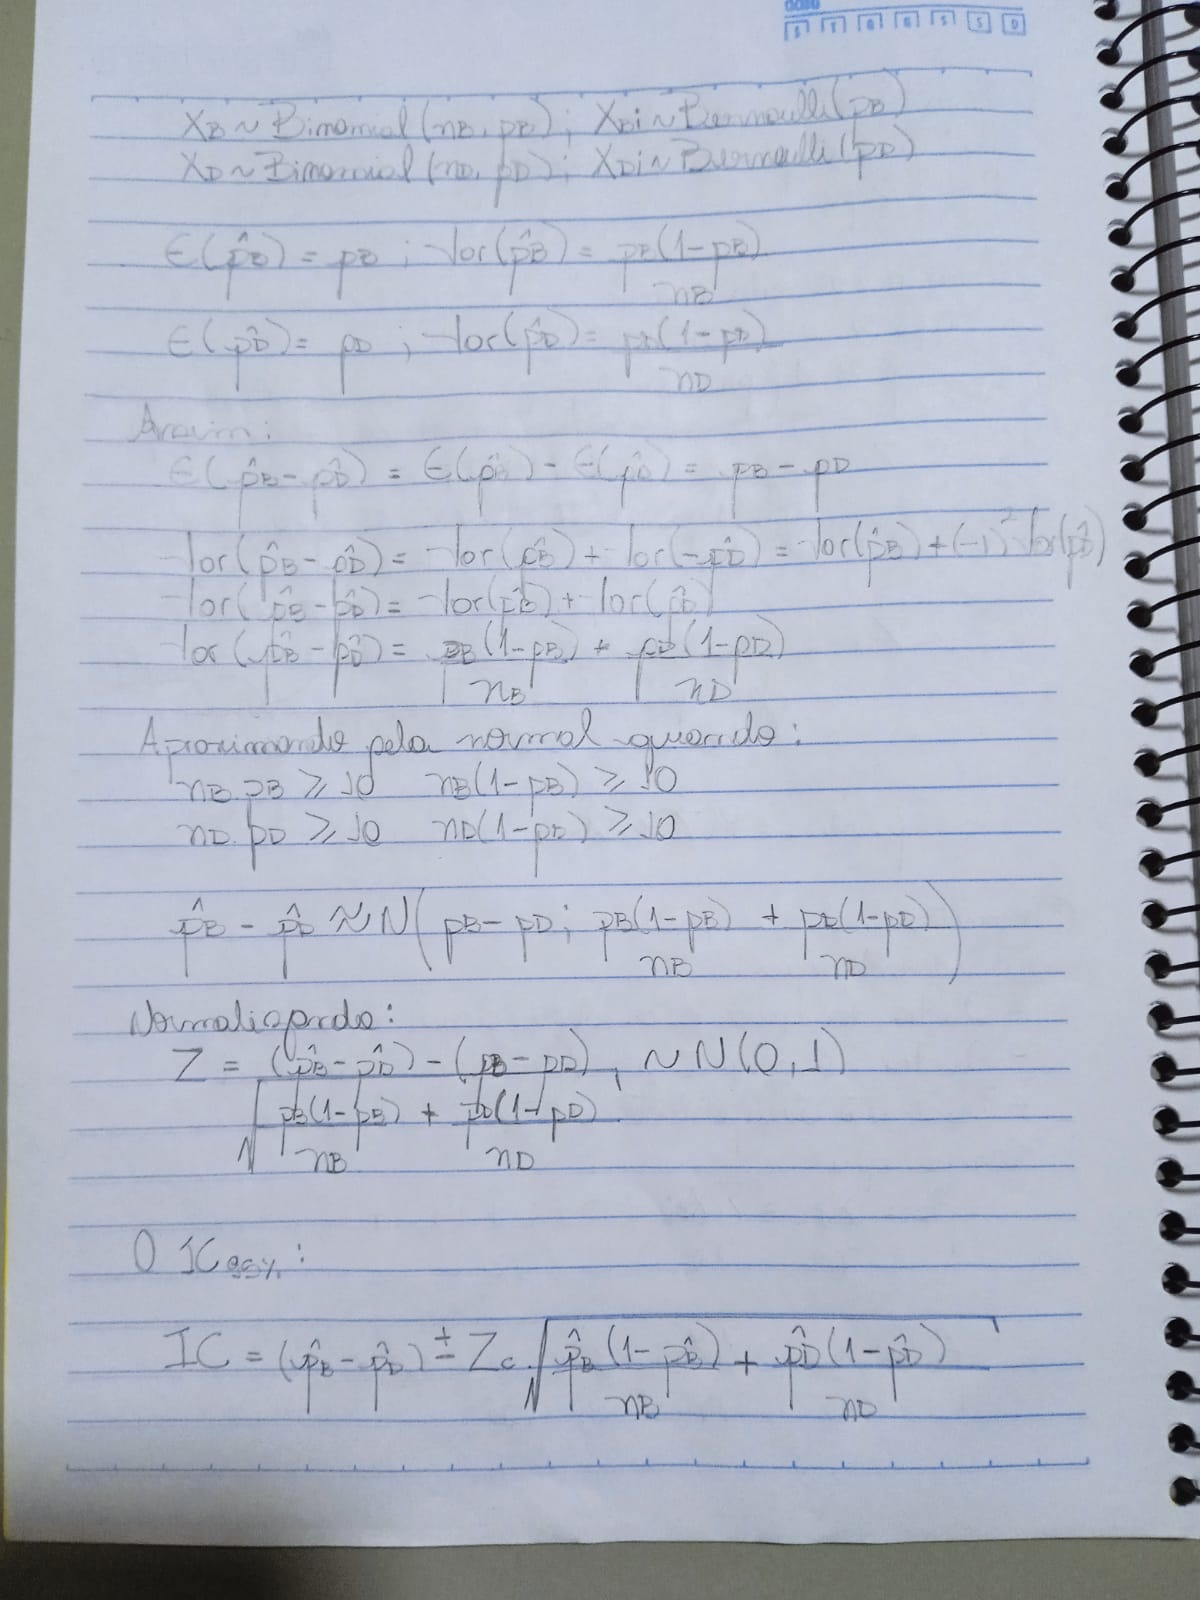 D S T Q Q S S D
XB ~ Binomial (nB, pB); XBi ~ Bernoulli (pB)
XD ~ Binomial (nD, pD); XDi ~ Bernoulli (pD)
E(p̂B) = pB ; Var(p̂B) = pB(1-pB)
nB
E(p̂D) = pD ; Var(p̂D) = pD(1-pD)
nD
Assim:
E(p̂B - p̂D) = E(p̂B) - E(p̂D) = pB - pD
Var(p̂B - p̂D) = Var(p̂B) + Var(-p̂D) = Var(p̂B) + (-1)² Var(p̂D)
Var(p̂B - p̂D) = Var(p̂B) + Var(p̂D)
Var(p̂B - p̂D) = pB(1-pB) + pD(1-pD)
nB nD
Aproximando pela normal quando:
nB.pB ≥ 10 nB(1-pB) ≥ 10
nD.pD ≥ 10 nD(1-pD) ≥ 10
p̂B - p̂D ≈ N(pB - pD; pB(1-pB) + pD(1-pD))
nB nD
Normalizando:
Z = (p̂B - p̂D) - (pB - pD), ~ N(0,1)
√ pB(1-pB) + pD(1-pD)
nB nD
O IC95%:
IC = (p̂B - p̂D) ± Zc.√ p̂B(1-p̂B) + p̂D(1-p̂D)
nB nD